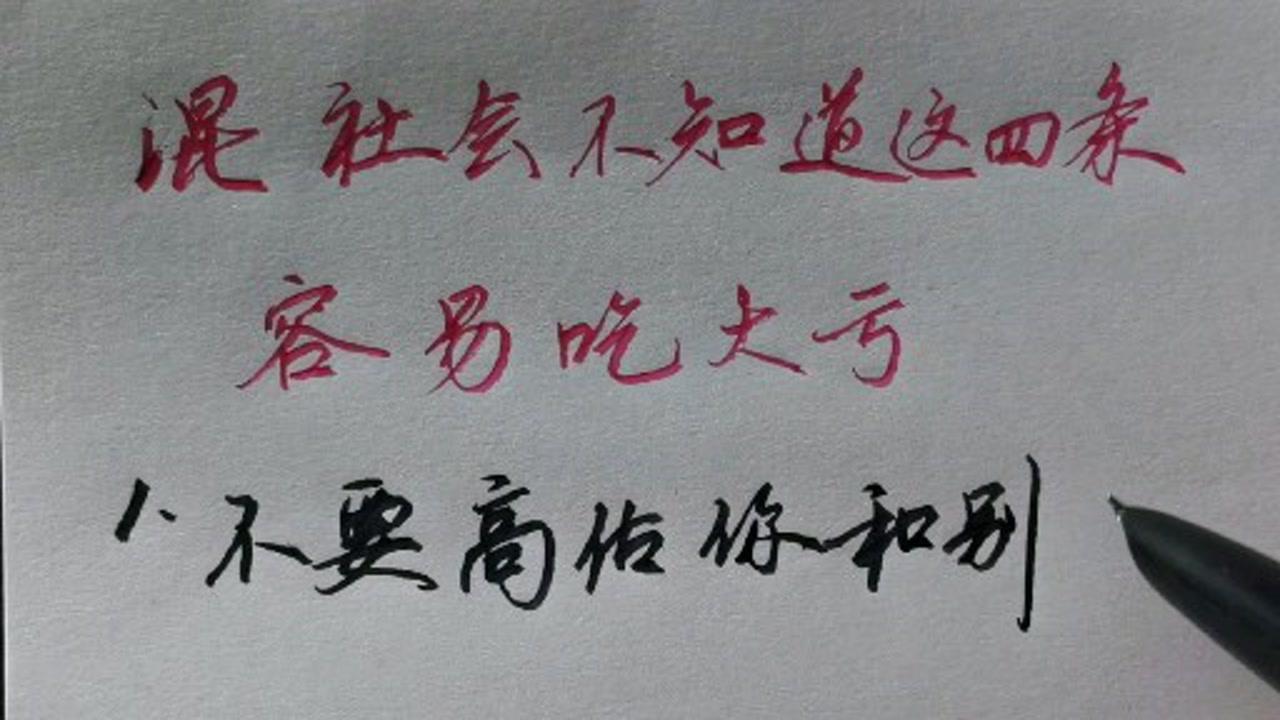 混社会不知道这四条
容易吃大亏
1、不要高估你和别